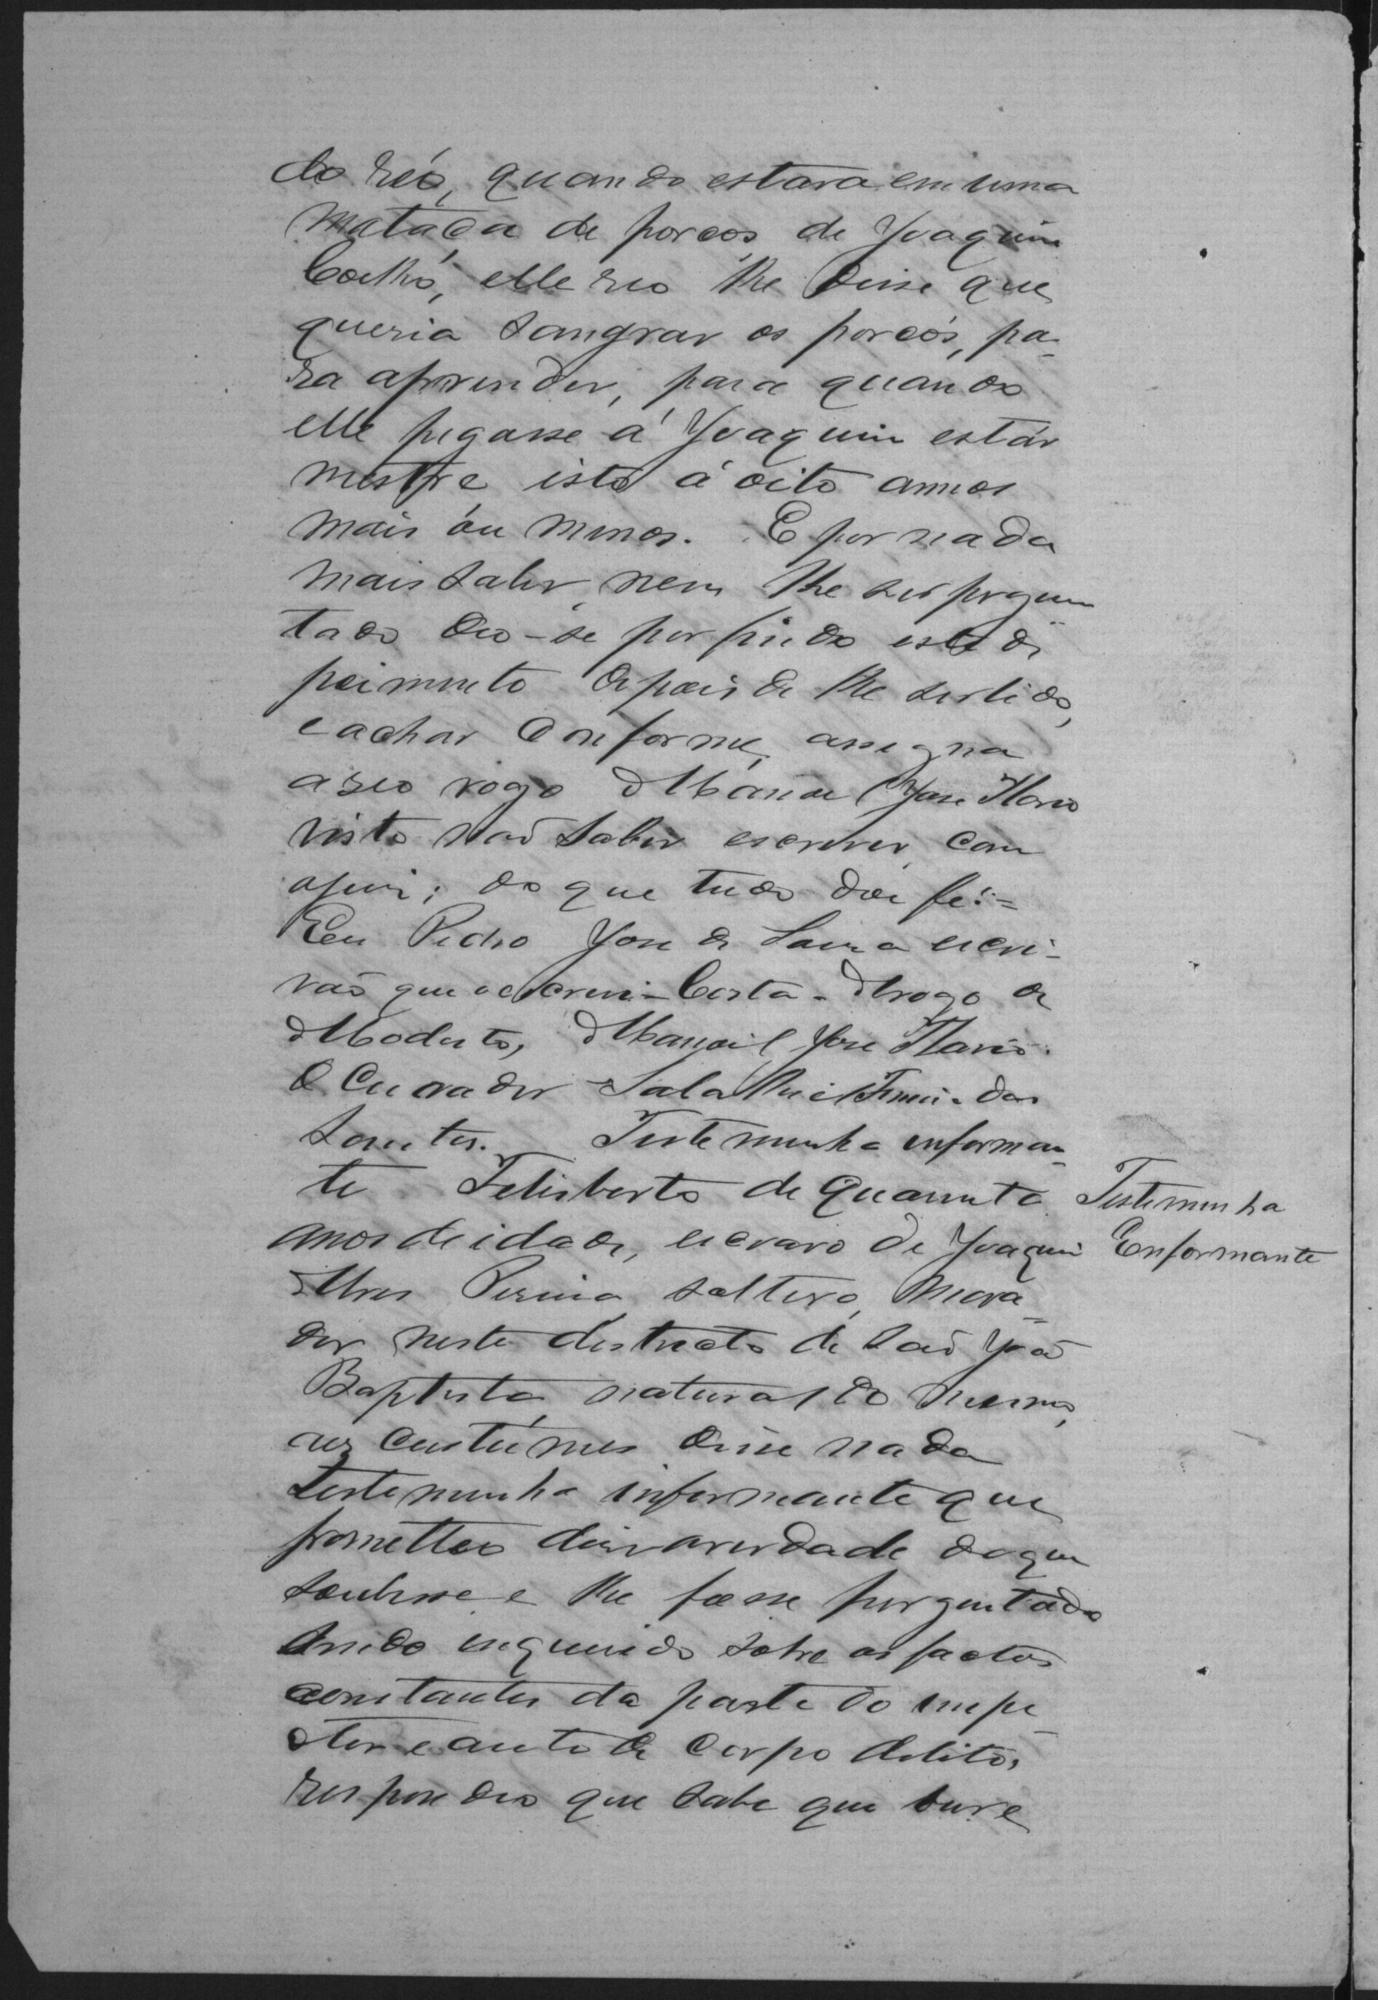 do réo, quando estava em uma
matança de porcos de Joaquim
Coelho, elle reo lhe disse que
queria sangrar os porcos, pa-
ra aprender, para quando
elle pegasse á Joaquim estár
mestre, isto á oito annos
mais óu menos. E por nada
mais saber, nem lhe ser pregun
tado deo-se por findo este de
poimento depois de lhe ser lido,
e achar conforme, assigna
a seo rogo Manoel José Flario
visto não saber escrever, com
o juiz; do que tudo dou fé. =
Eeu Pedro José de Souza escri-
vão que o escrevi - Costa - Arogo de
Modesto, Manoel José Flario.
O Curador - Salathiel Firmi. dos
Santos. Testemunha informan-
te Felisberto de quarenta
annos de idade, escravo de Joaquim
Alves Pereira, solteiro, mora-
dor neste destricto de São João
Baptista, natural do mesmo,
aos custúmes disse nada
testemunha informante que
prometteo dizer averdade do que
soubesse e lhe fosse perguntado
sendo inquerido sobre os factos
constantes da parte do inspe
ctor e auto de corpo delito,
respondeo que sabe que
Testemunha
Enformante